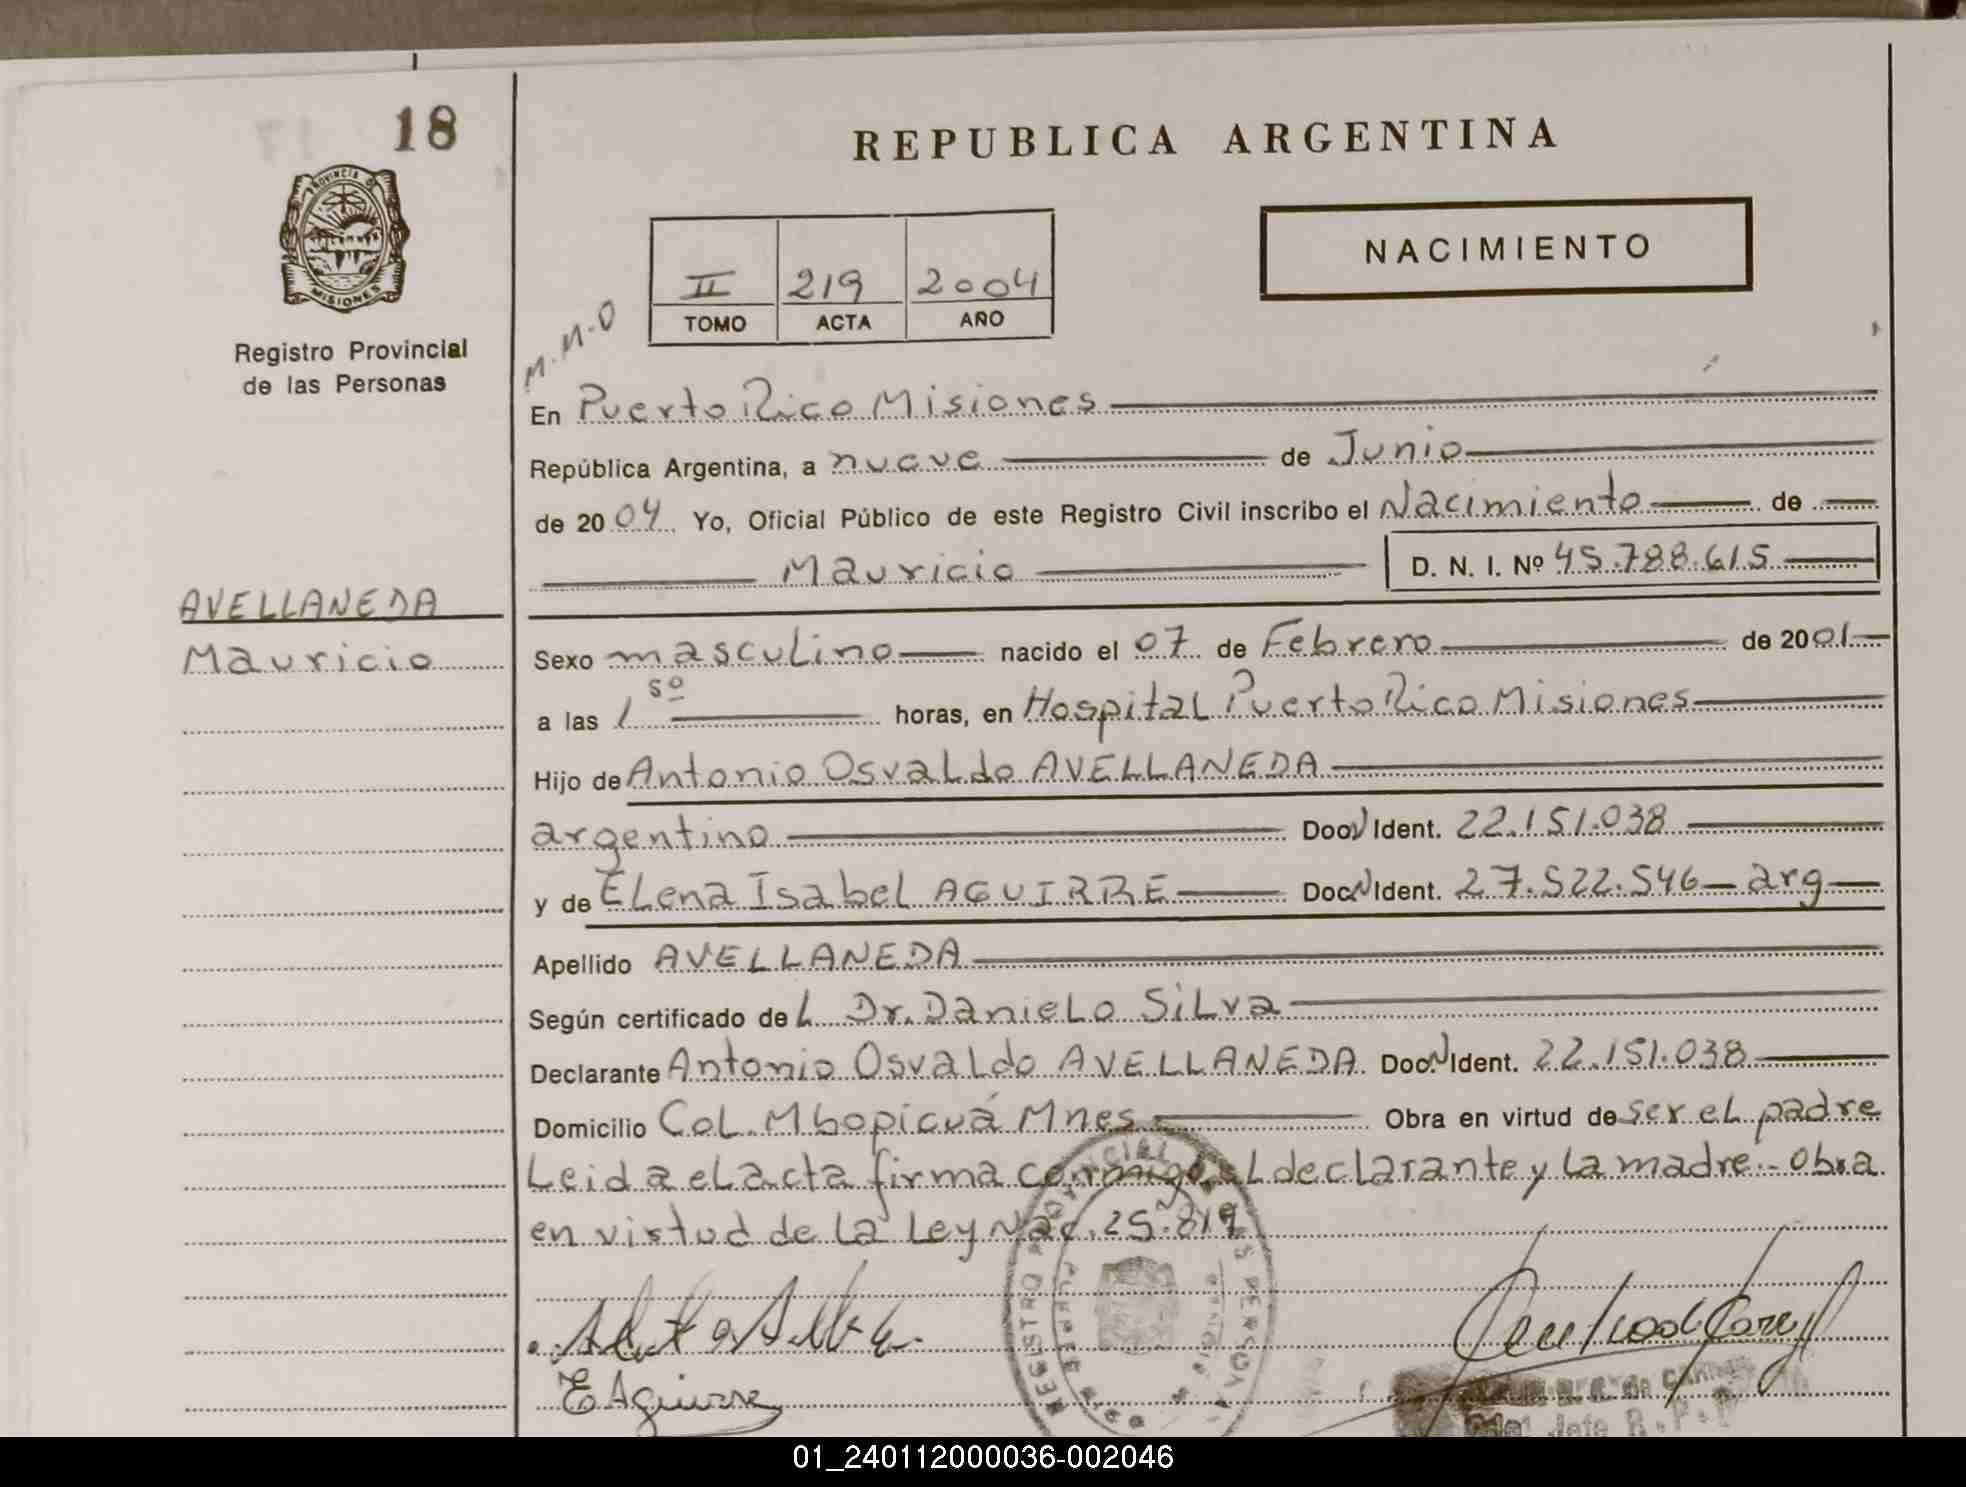 18
REPUBLICA ARGENTINA
PROVINCIA DE
MISIONES
NACIMIENTO
II 219 2004
TOMO ACTA AÑO
Registro Provincial
de las Personas
M.M.O
En Puerto Rico Misiones
República Argentina, a nueve de Junio
de 2004 Yo, Oficial Público de este Registro Civil inscribo el Nacimiento de
Mauricio D. N. I. Nº 45.788.615
AVELLANEDA
Mauricio
Sexo masculino nacido el 07 de Febrero de 2001
a las 1 50 horas, en Hospital Puerto Rico Misiones
Hijo de Antonio Osvaldo AVELLANEDA
argentino Doc. N Ident. 22.151.038
y de Elena Isabel AGUIRRE Doc. N Ident. 27.522.546 - arg
Apellido AVELLANEDA
Según certificado del Dr. Danielo Silva
Declarante Antonio Osvaldo AVELLANEDA Doc. N Ident. 22.151.038
Domicilio Col. Mbopicuá Mnes Obra en virtud de ser el padre
Leida el acta firma conmigo el declarante y la madre.- Obra
en virtud de la Ley Nac. 25.819
REGISTRO PROVINCIAL DE LAS PERSONAS
E Aguirre
Jefe R.P.P
01_240112000036-002046